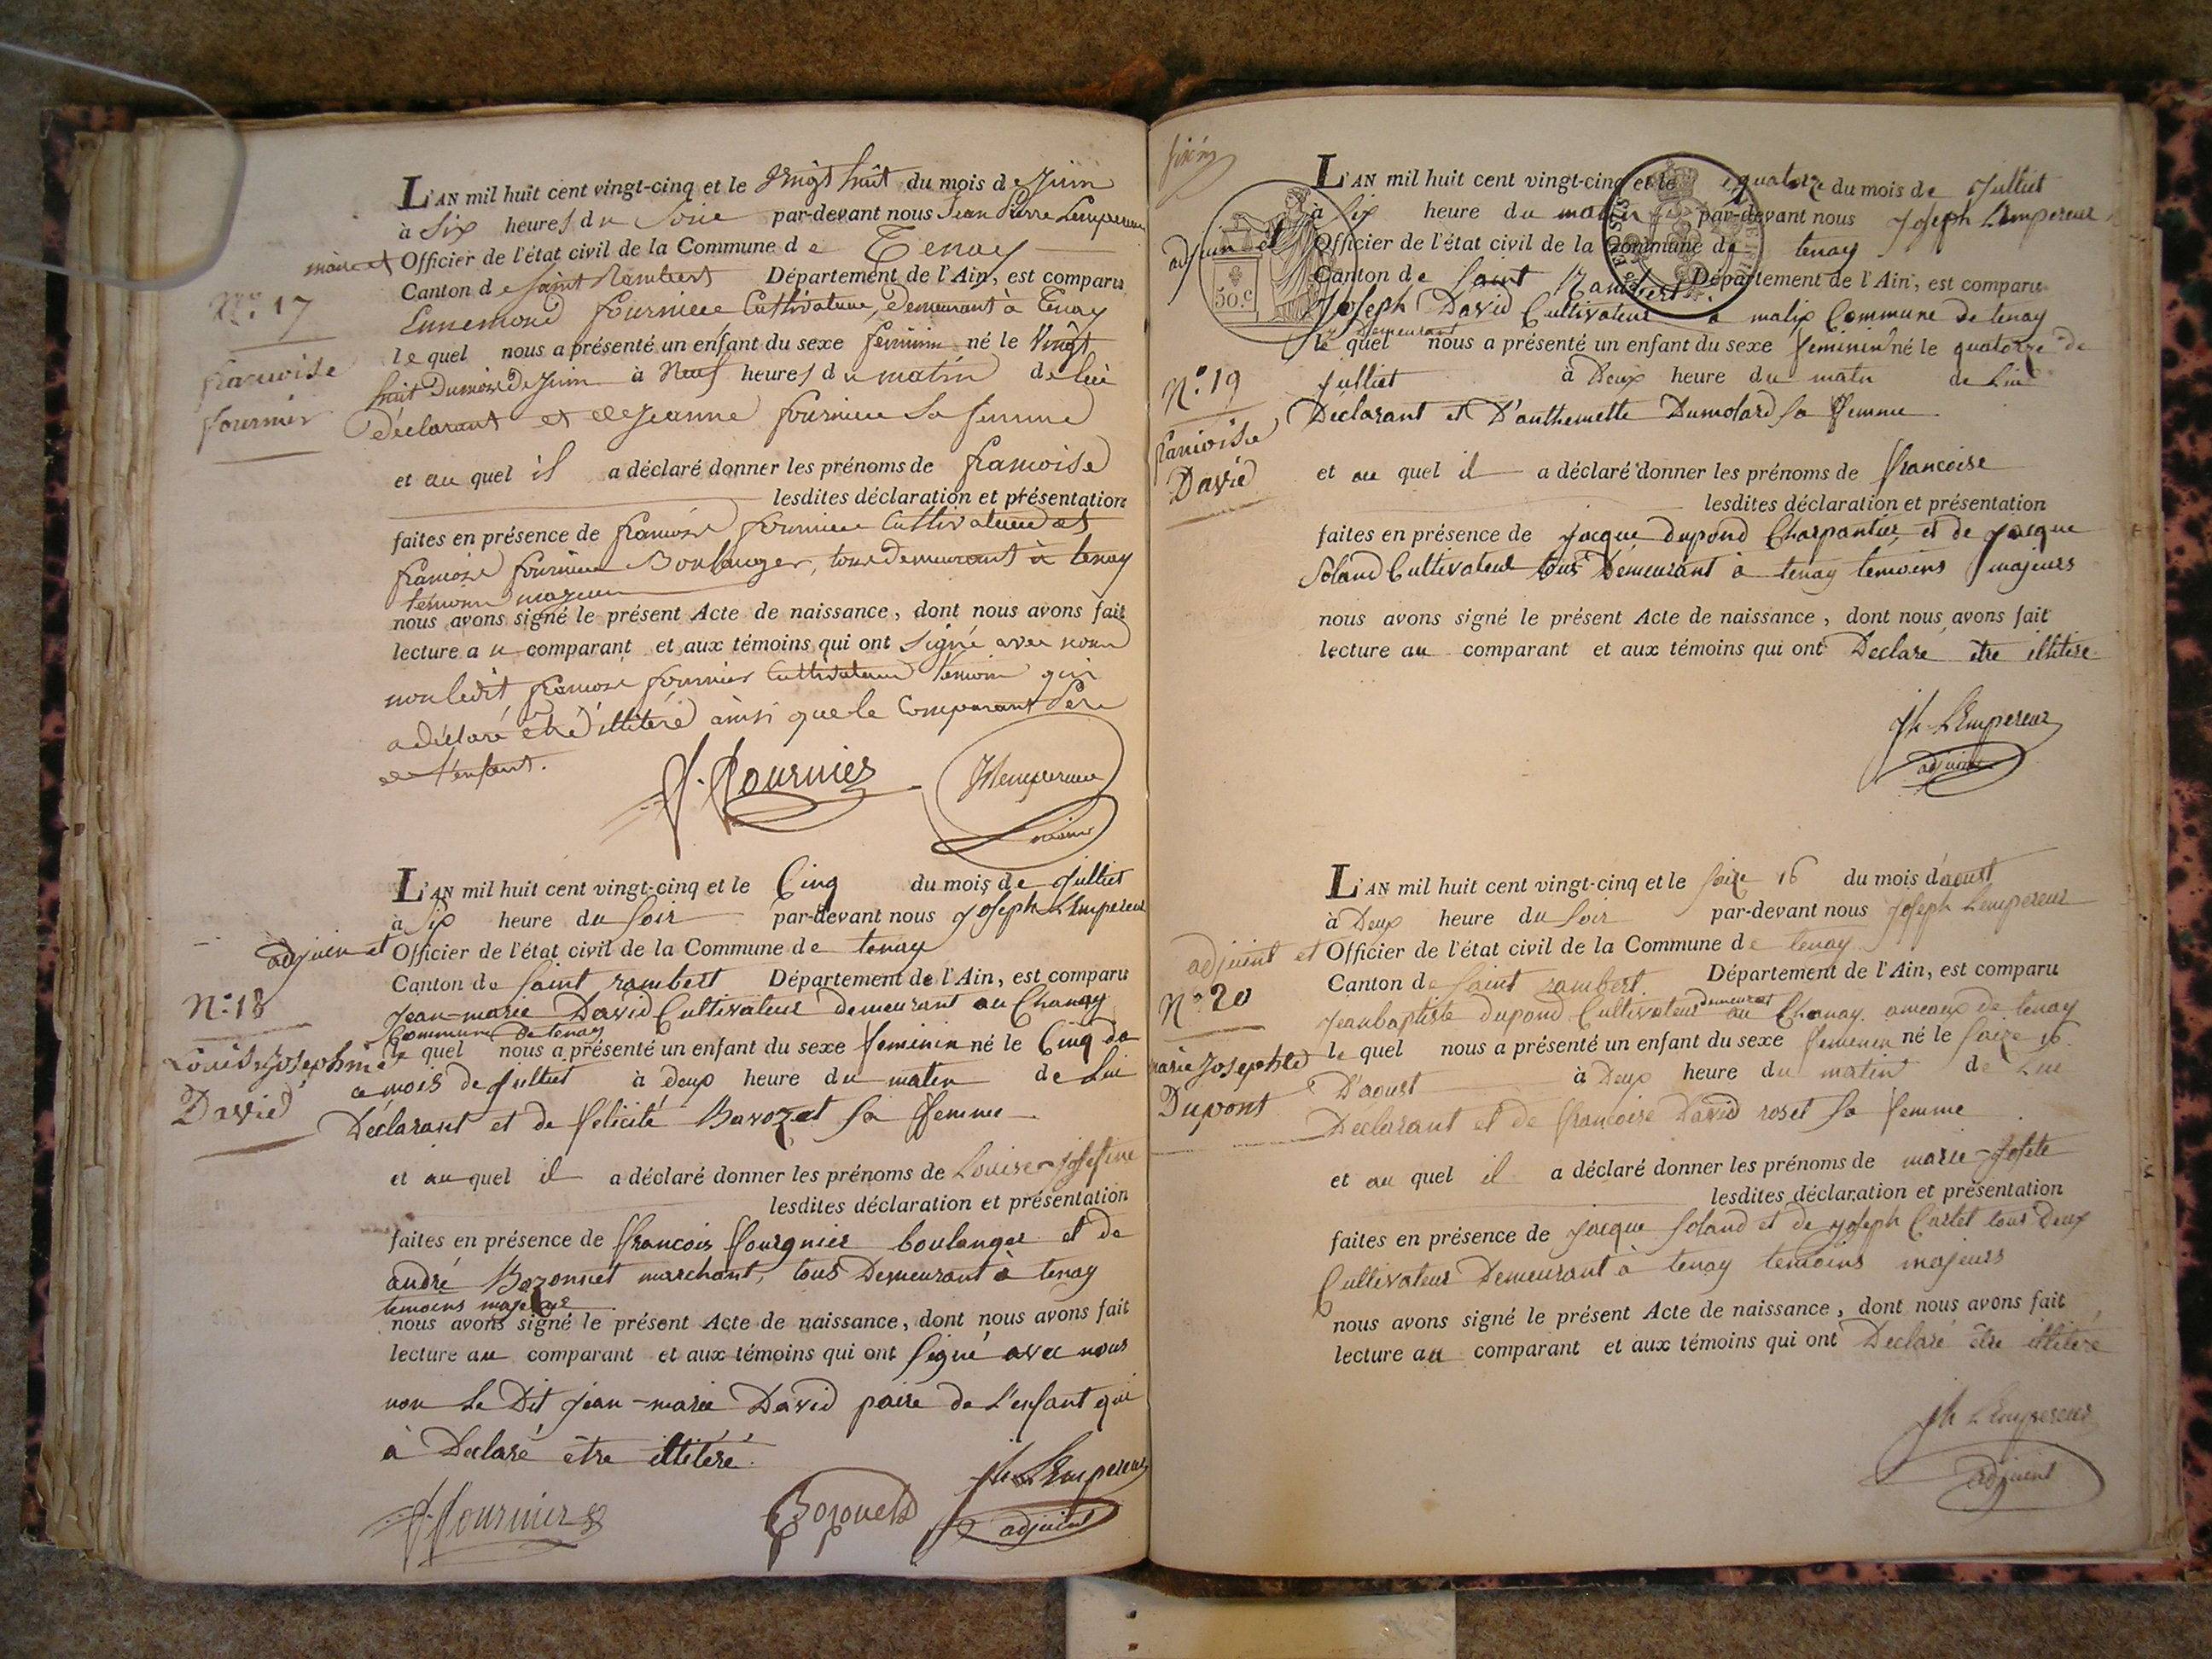 L'AN mil huit cent vingt-cinq et le vingt huit du mois de juin
à Six heures du Soir par-devant nous Jean Pierre Lempereur
maire et Officier de l'état civil de la Commune de Tenay
Canton de Saint Rambert Département de l'Ain, est comparu
N.° 17
Ennemond fournier Cultivateur, Demeurant à Tenay
le quel nous a présenté un enfant du sexe féminin né le Vingt
francoise
fournier
huit Du mois De Juin à Neuf heures du matin de lui
déclarant et de Jeanne fournier Sa femme
et au quel il a déclaré donner les prénoms de francoise
lesdites déclaration et présentation
faites en présence de francois fournier Cultivateur et
francois fournier Boulanger, tous demeurant à tenay
témoins majeurs
nous avons signé le présent Acte de naissance, dont nous avons fait
lecture au comparant et aux témoins qui ont Signé avec nous
non ledit francois fournier Cultivateur témoin qui
a déclaré être illitéré ainsi que le Comparant Père
de l'enfant.
f. fournier
JLempereur
maire
L'AN mil huit cent vingt-cinq et le Cinq du mois de Julliet
à Six heure du Soir par-devant nous Joseph LEmpereur
adjoint et Officier de l'état civil de la Commune de tenay
Canton de Saint rambert Département de l'Ain, est comparu
N.° 18
Jean-marie David Cultivateur demeurant au Chanay
Commune De tenay
le quel nous a présenté un enfant du sexe feminin né le Cinq du
Louise Josephine
David
a mois de Julliet à Deux heure du matin de Lui
Déclarant et de félicité Bavozat Sa femme
et au quel il a déclaré donner les prénoms de Louise-Josefine
lesdites déclaration et présentation
faites en présence de francois fourgnier boulanger et de
andré Bozonnet marchant, tous Demeurant à tenay
temoins majeurs
nous avons signé le présent Acte de naissance, dont nous avons fait
lecture au comparant et aux témoins qui ont Signé avec nous
non Le Dit Jean-marie David paire de L'enfant qui
à Déclaré être illitéré.
f. fournier
Bozonet
Jh LEmpereur
adjoint
L'AN mil huit cent vingt-cinq et le quatorze du mois de Julliet
à Six heure du matin par-devant nous Joseph LEmpereur
adjoint et Officier de l'état civil de la Commune de tenay
50.c
Canton de Saint Rambert Département de l'Ain, est comparu
Joseph David Cultivateur à malix Commune de tenay
demeurant
le quel nous a présenté un enfant du sexe feminin né le quatorze de
N.° 19
Julliet à Deux heure du matin de Lui
Déclarant et D'anthemette Dumolard Sa femme
francoise
David
et au quel il a déclaré donner les prénoms de francoise
lesdites déclaration et présentation
faites en présence de Jacque dupond Charpantier, et de Jacque
Soland Cultivateur tous Demeurant à tenay temoins majeurs
nous avons signé le présent Acte de naissance, dont nous avons fait
lecture au comparant et aux témoins qui ont Déclaré être illitéré
Jh LEmpereur
adjoint
L'AN mil huit cent vingt-cinq et le Saize 16 du mois d'aoust
à Deux heure du Soir par-devant nous Joseph Lempereur
adjoint et Officier de l'état civil de la Commune de tenay
Canton de Saint rambert. Département de l'Ain, est comparu
N.° 20
Jean baptiste dupond Cultivateur demeurant au Chanay ameaux de tenay
le quel nous a présenté un enfant du sexe femenin né le Saize 16.
marie Josephte
Dupont
D'aoust à Deux heure du matin de Lui
Déclarant et de francoise David roset Sa femme
et au quel il a déclaré donner les prénoms de marie-Josete
lesdites déclaration et présentation
faites en présence de Jacque Soland et de Joseph Cartet tous Deux
Cultivateur Demeurant à tenay temoins majeurs
nous avons signé le présent Acte de naissance, dont nous avons fait
lecture au comparant et aux témoins qui ont Déclaré être illitéré
Jh LEmpereur
adjoint